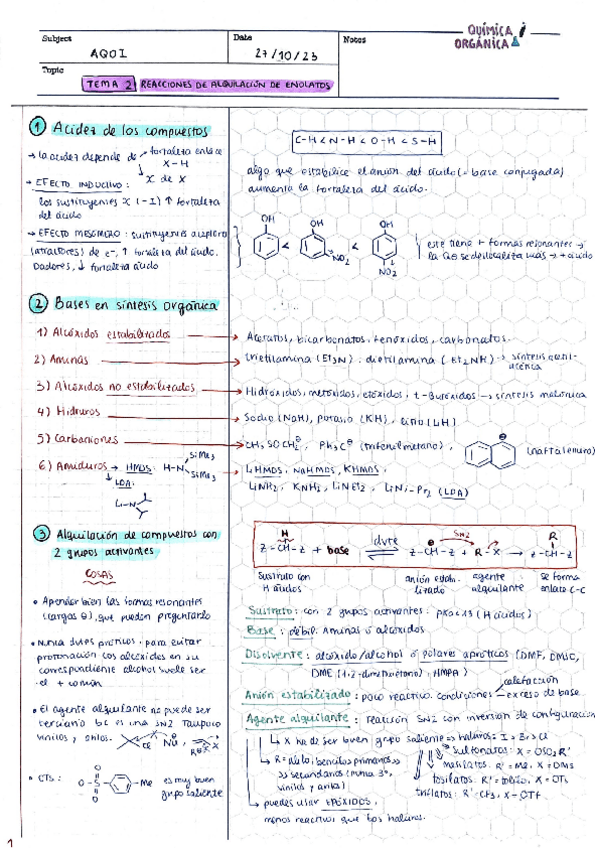 Subject
AQOI
Date
27/10/23
Notes
QUÍMICA
ORGÁNICA
Topic
TEMA 2 REACCIONES DE ALQUILACIÓN DE ENOLATOS
1 Acidez de los compuestos
→ la acidez depende de fortaleza enlace
X-H
X de X
→ EFECTO INDUCTIVO:
los sustituyentes X (-I) ↑ fortaleza
del ácido
→ EFECTO MESOMERO: sustituyentes aceptores
(atractores) de e-, ↑ fortaleza del ácido.
Dadores, ↓ fortaleza ácido
C-H < N-H < O-H < S-H
algo que estabilice el anión del ácido (= base conjugada)
aumenta la fortaleza del ácido.
OH < OH < OH
NO2
NO2
este tiene + formas resonantes →
la se deslocaliza más → + ácido
2 Bases en síntesis orgánica
1) Alcóxidos estabilizados → Acetatos, bicarbonatos, fenóxidos, carbonatos.
2) Aminas → trietilamina (Et3N), dietilamina (Et2NH) → síntesis
3) Alcóxidos no estabilizados → Hidróxidos, metóxidos, etóxidos, t-Butóxidos → síntesis malónica
4) Hidruros → Sodio (NaH), potasio (KH), Litio (LiH)
5) Carbaniones → CH3SOCH2⊖, Ph3C⊖ (trifenilmetano), (naftalenuro)
6) Amiduros → HMDS: H-N SiMe3
SiMe3
LiHMDS, NaHMDS, KHMDS
LDA:
Li-N
LiNH2, KNH2, LiNEt2, LiNi-Pr2 (LDA)
3 Alquilación de compuestos con
2 grupos activantes
COSAS
• Aprender bien las formas resonantes
(cargas ⊖), que pueden preguntarlo
• Nunca dvtes próticos, para evitar
protonación los alcóxidos en su
correspondiente alcohol suele ser
el + común
• El agente alquilante no puede ser
terciario bc es una SN2 Tampoco
vinilos y arilos.
Cl Nu
• OTs: O-S Me es muy buen
O
O
grupo saliente
H
Z-CH-Z + base
dvte
⊖
Z-CH-Z + R-X
SN2
R
Z-CH-Z
sustrato con
H ácidos
anión estabi-
lizado
agente
alquilante
se forma
enlace C-C
Sustrato: con 2 grupos activantes: (H ácidos)
Base: débil: Aminas o alcóxidos
Disolvente: alcóxido/alcohol o polares apróticos (DMF, DMSO,
DME (1,2-dimetoxietano), HMPA)
Anión estabilizado: poco reactivo. condiciones calefacción
exceso de base
Agente alquilante: reacción SN2 con inversión de configuración
X ha de ser buen grupo saliente ⇒ haluros: I > Br > Cl
sulfonatos: X = OSO2R'
R = alilo, bencilos, primarios >>
>> secundarios (nunca 3º,
vinilos y arilo)
mesilatos: R' = Me, X = OMs
tosilatos: R' = tolilo, X = OTs
triflatos: R' = CF3, X = OTf
puedes usar EPÓXIDOS,
menos reactivos que los haluros.
1